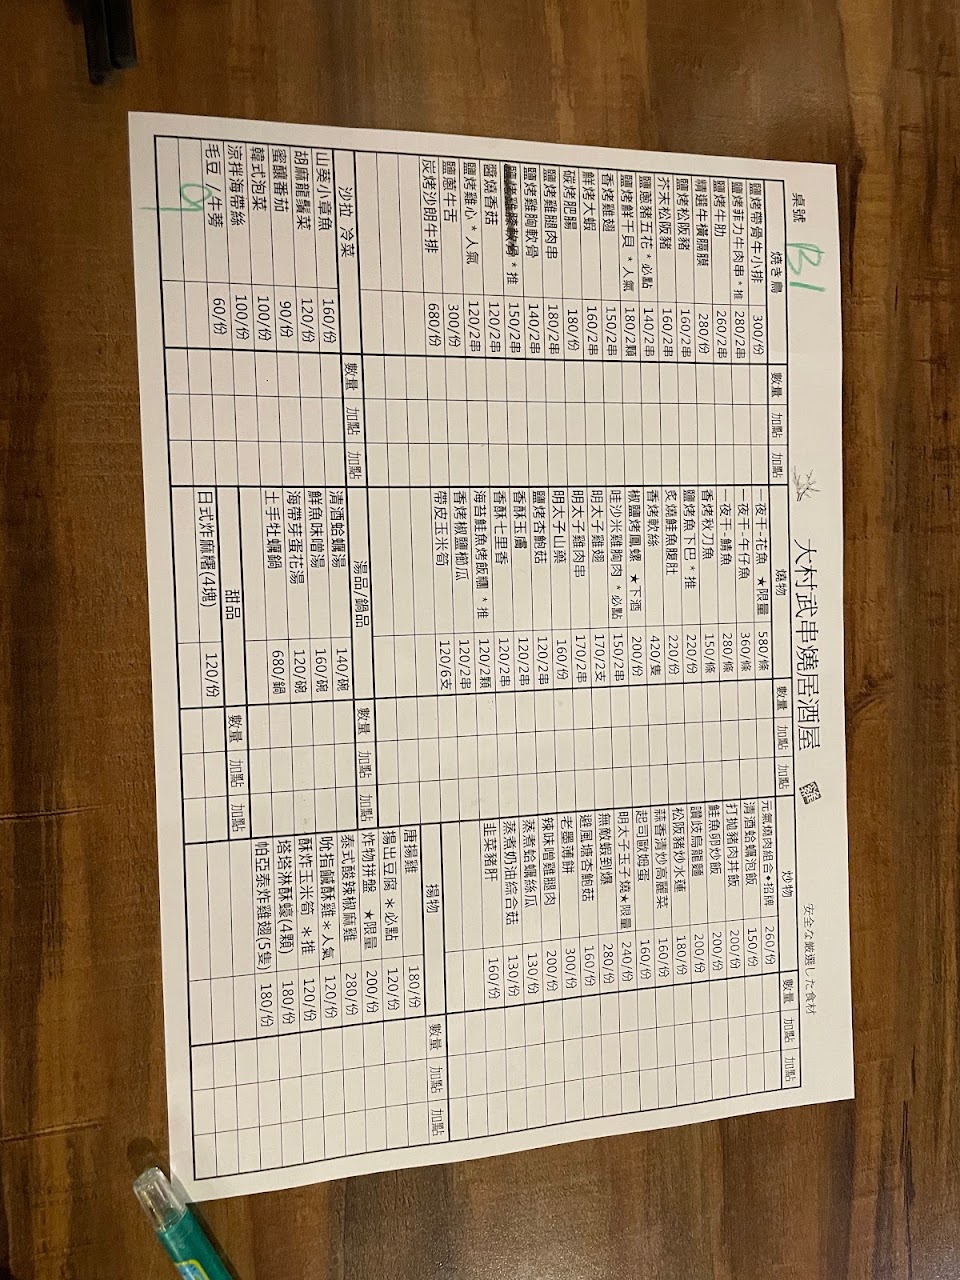 桌號 B1 大村武串燒居酒屋 雞 安全な厳選した食材
焼き鳥 數量 加點 加點
鹽烤帶骨牛小排 300/份
鹽烤菲力牛肉串*推 280/2串
鹽烤牛肋 260/2串
精選牛橫膈膜 280/份
鹽烤松阪豬 160/2串
芥末松阪豬 160/2串
鹽蔥豬五花*必點 140/2串
鹽烤鮮干貝*人氣 180/2顆
香烤雞翅 150/2串
鮮烤大蝦 160/2串
碳烤肥腸 180/份
鹽烤雞腿肉串 180/2串
鹽烤雞胸軟骨 140/2串
鹽烤雞膝軟骨*推 150/2串
醬燒香菇 120/2串
鹽烤雞心*人氣 120/2串
鹽蔥牛舌 300/份
炭烤沙朗牛排 680/份
沙拉 冷菜 數量 加點 加點
山葵小章魚 160/份
胡麻龍鬚菜 120/份
蜜釀番茄 90/份
韓式泡菜 100/份
涼拌海帶絲 100/份
毛豆/牛蒡 60/份
燒物 數量 加點 加點
一夜干-花魚 ★限量 580/條
一夜干-午仔魚 360/條
一夜干-鯖魚 280/條
香烤秋刀魚 150/條
鹽烤魚下巴*推 220/份
炙燒鮭魚腹肚 220/份
香烤軟絲 420/隻
椒鹽烤鳳螺 ★下酒 200/份
哇沙米雞胸肉*必點 150/2串
明太子雞翅 170/2支
明太子雞肉串 170/2串
明太子山藥 160/份
鹽烤杏鮑菇 120/2串
香酥玉膚 120/2串
香酥七里香 120/2串
海苔鮭魚烤飯糰*推 120/2顆
香烤椒鹽櫛瓜 120/2串
帶皮玉米筍 120/6支
湯品/鍋品 數量 加點 加點
清酒蛤蠣湯 140/碗
鮮魚味噌湯 160/碗
海帶芽蛋花湯 120/碗
土手牡蠣鍋 680/鍋
甜品 數量 加點 加點
日式炸麻糬(4塊) 120/份
炒物 數量 加點 加點
元氣燒肉組合•招牌 260/份
清酒蛤蠣泡飯 150/份
打拋豬肉丼飯 200/份
鮭魚卵炒飯 200/份
讚岐烏龍麵 200/份
松阪豬炒水蓮 180/份
蒜香清炒高麗菜 160/份
起司歐姆蛋 160/份
明太子玉子燒★限量 240/份
無敵蝦到爆 280/份
避風塘杏鮑菇 160/份
老墨薄餅 300/份
辣味噌雞腿肉 200/份
蒸煮蛤蠣絲瓜 130/份
蒸煮奶油綜合菇 130/份
韭菜豬肝 160/份
揚物 數量 加點 加點
唐揚雞 180/份
揚出豆腐 *必點 120/份
炸物拼盤 ★限量 200/份
泰式酸辣椒麻雞 280/份
吮指鹹酥雞*人氣 120/份
酥炸玉米筍 *推 120/份
塔塔淋酥蠔(4顆) 180/份
帕亞泰炸雞翅(5隻) 180/份